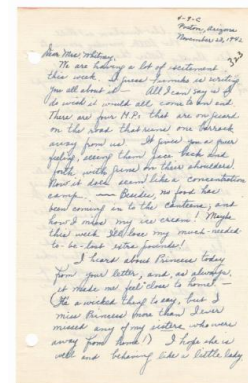 4-9-C
Poston, Arizona
November 23, 1942
323
Dear Miss Whitney,
We are having a lot of excitement
this week. I guess is writing
you all about it — All I can say is I
do wish it would all come to an end
There are four M.P.s that are on guard
on the road that runs one barrack
away from us. It gives you a queer
feeling, seeing them pace back and
forth with guns on their shoulders.
Now it does seem like a concentration
camp. — Besides, no food has
been coming in to the canteens, and
how I miss my ice cream! Maybe
this week I'll lose my much-needed
to-be-lost extra pounds!
I heard about Princess today
from your letter, and, as always,
it made me feel close to home. —
(It's a wicked thing to say, but I
miss Princess more than I ever
missed any of my sisters who were
away from home!) I hope she is
well and behaving like a little lady